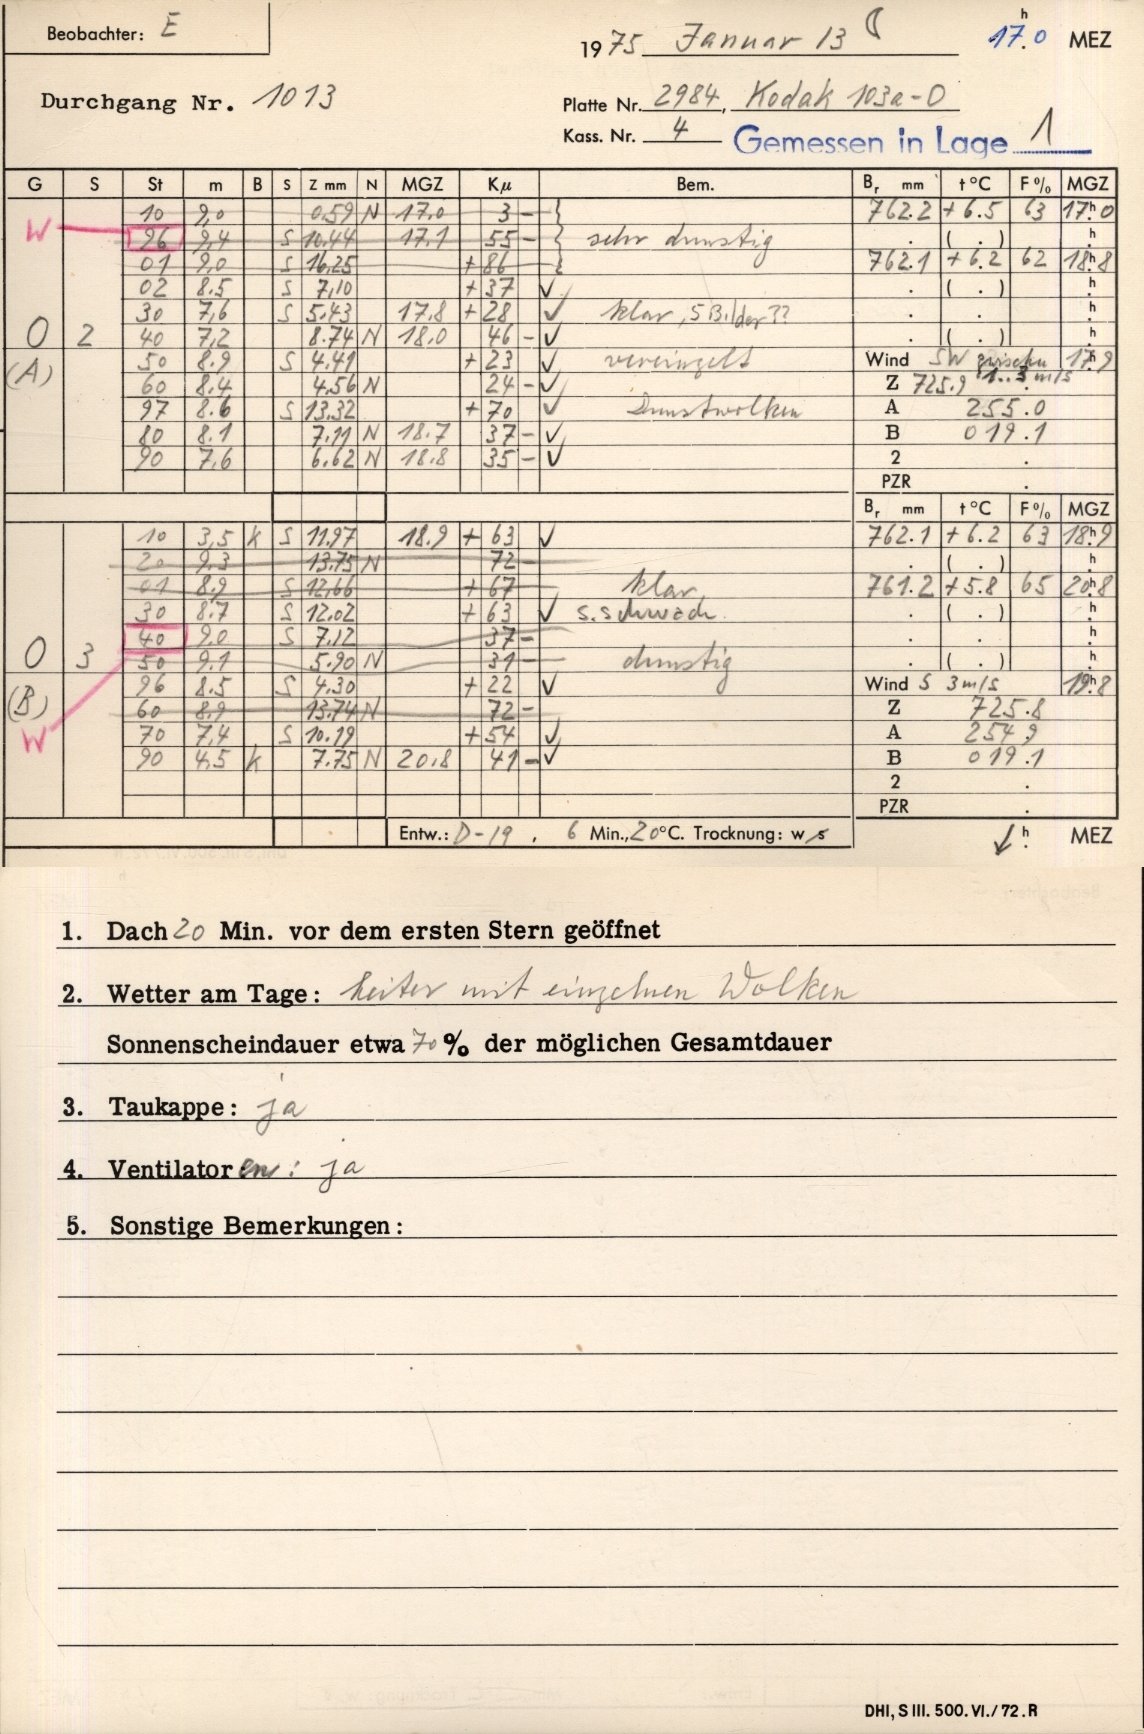 Beobachter: E
1975 Januar 13 17.0 h MEZ
Durchgang Nr. 1013
Platte Nr. 2984, Kodak 103a-O
Kass. Nr. 4 Gemessen in Lage 1
G S St m B S Z mm N MGZ Kμ Bem. Br mm t°C F% MGZ
10 9,0 0.59 N 17.0 3 - 762.2 +6.5 63 17h0
W 96 9,4 S 10.44 17.1 55 - sehr dunstig . ( . ) h
01 9,0 S 16,25 + 86 762.1 +6.2 62 18h8
02 8.5 S 7,10 + 37 ✓ . ( . ) h
30 7,6 S 5.43 17,8 + 28 ✓ klar, S Bilder?? . . h
0 2 40 7,2 8.74 N 18.0 46 - ✓ . ( . ) h
(A) 50 8.9 S 4.41 + 23 ✓ vereinzelt Wind SW zwischen 17h9
60 8.4 4,56 N 24 - ✓ Z 725.9 1..3 m/s
97 8.6 S 13,32 + 70 ✓ Dunstwolken A 255.0
80 8.1 7,11 N 18.7 37 - ✓ B 019.1
90 7,6 6.62 N 18.8 35 - ✓ 2 .
PZR .
Br mm t°C F% MGZ
10 3,5 k S 11.97 18.9 + 63 ✓ 762.1 +6.2 63 18h9
20 9.3 13.75 N 72 - . ( . ) h
01 8,9 S 12,66 + 67 klar 761.2 +5.8 65 20h8
30 8.7 S 12.02 + 63 ✓ s. schwach . ( . ) h
40 9.0 S 7.12 37 - . . h
0 3 50 9.1 5.90 N 31 - dunstig . ( . ) h
(B) 96 8.5 S 4.30 + 22 ✓ Wind S 3 m/s 19h8
60 8.9 13.74 N 72 - Z 725.8
W 70 7,4 S 10.19 + 54 ✓ A 254.9
90 4,5 k 7.75 N 20.8 41 - ✓ B 019.1
2 .
PZR .
Entw.: D-19, 6 Min., 20°C. Trocknung: w/s h MEZ
1. Dach 20 Min. vor dem ersten Stern geöffnet
2. Wetter am Tage: heiter mit einzelnen Wolken
Sonnenscheindauer etwa 70 % der möglichen Gesamtdauer
3. Taukappe: ja
4. Ventilatoren: ja
5. Sonstige Bemerkungen:
DHI, S III. 500. VI./72. R